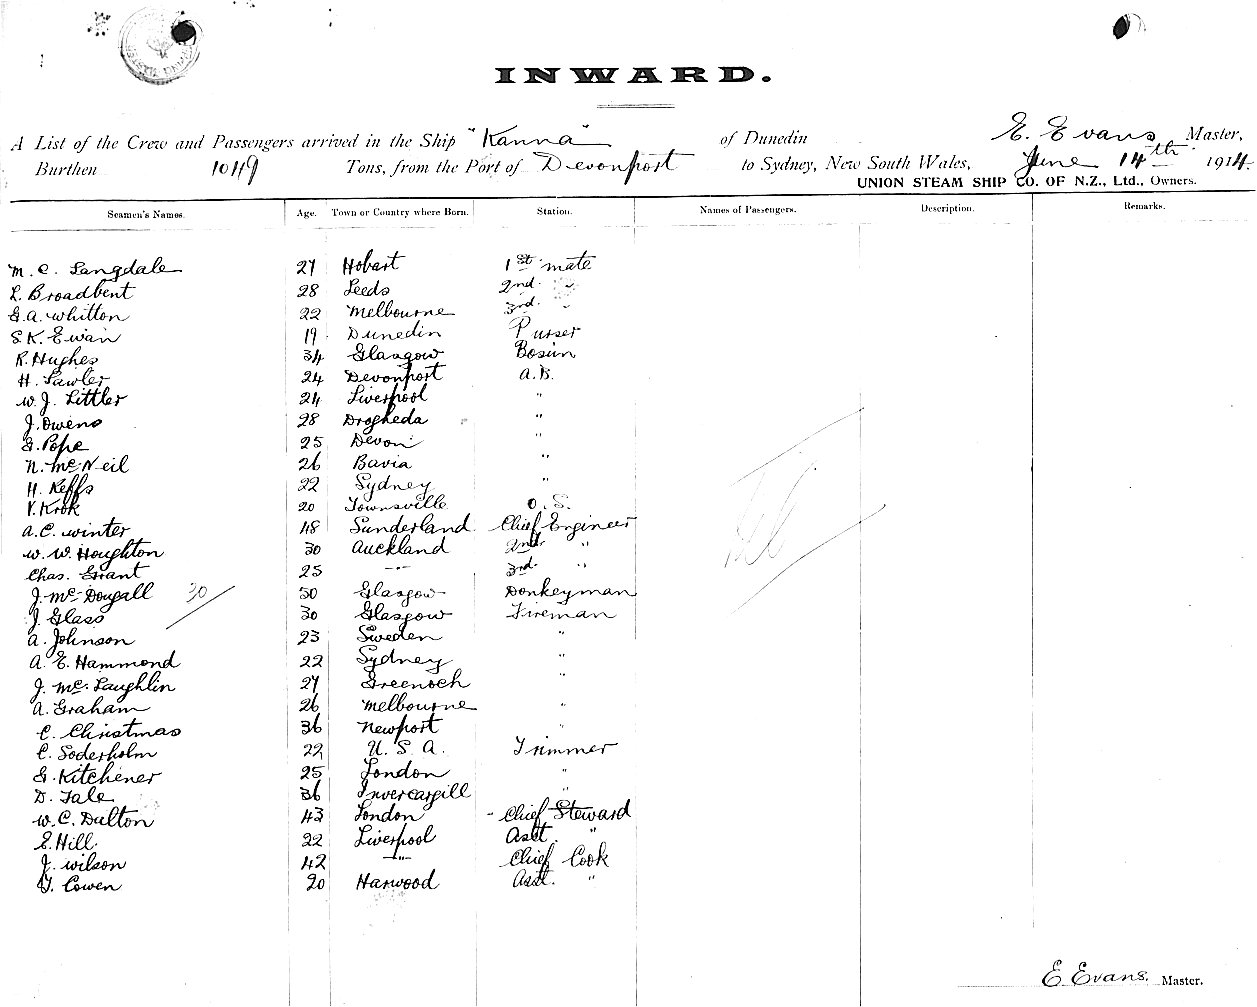 INWARD.
A List of the Crew and Passengers arrived in the Ship "Kanna" of Dunedin E. Evans Master,
Burthen 1049 Tons, from the Port of Devonport to Sydney, New South Wales, June 14th 1914
UNION STEAM SHIP CO. OF N.Z., Ltd., Owners.
Seamen's Names. Age. Town or Country where Born. Station. Names of Passengers. Description. Remarks.
M. C. Langdale 27 Hobart 1st mate
L. Broadbent 28 Leeds 2nd "
G. A. Whitton 22 Melbourne 3rd "
S. K. Ewan 19 Dunedin Purser
R. Hughes 34 Glasgow Bosun
H. Lawler 24 Devonport A.B.
W. J. Littler 24 Liverpool "
J. Owens 28 Drogheda "
G. Pope 25 Devon "
N. McNeil 26 Bavia "
H. Keffs 22 Sydney "
V. Krok 20 Townsville O.S.
A. C. Winter 48 Sunderland Chief Engineer
W. W. Houghton 30 Auckland 2nd "
Chas. Grant 25 -"- 3rd "
J. McDougall 30 50 Glasgow Donkeyman
J. Glass 30 Glasgow Fireman
A. Johnson 23 Sweden "
A. E. Hammond 22 Sydney "
J. McLaughlin 27 Greenoch "
A. Graham 26 Melbourne "
C. Christmas 36 Newport "
C. Soderholm 22 U.S.A. Trimmer
G. Kitchener 25 London "
D. Tale 36 Invercargill "
W. C. Dalton 43 London - Chief Steward
E. Hill. 22 Liverpool Asst. "
J. Wilson 42 -"- Chief Cook
T. Cowen 20 Harwood Asst. "
E Evans. Master.